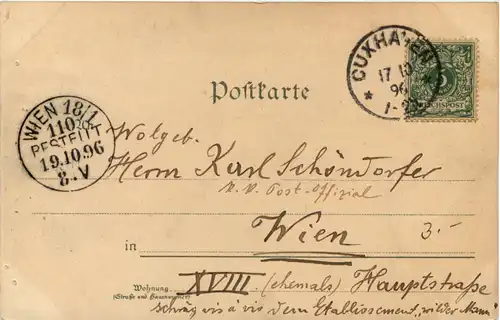 CUXHAVEN
17 10
96
5
REICHSPOST
Postkarte
WIEN 18/1
110
BESTELLT
19.10.96
8.V
Wolgeb.
Herrn Karl Schöndorfer
k. k. Post-Offizial
Wien
3.-
in
Wohnung
(Straße und Hausnummer)
XVIII (ehemals) Hauptstraße
schräg vis à vis dem Etablissement „wilder Mann"